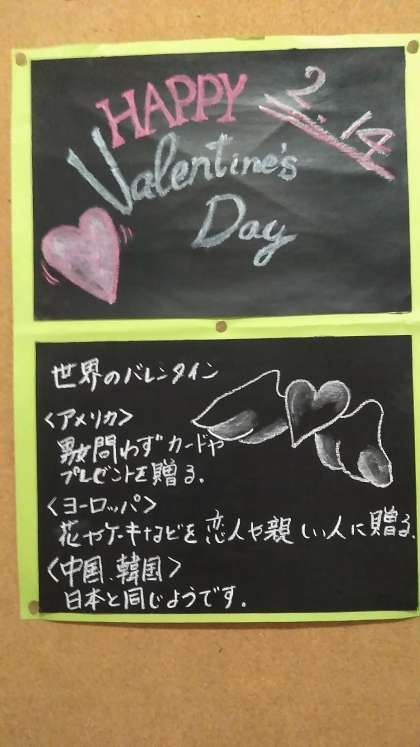 HAPPY
2.14
Valentine's
Day
世界のバレンタイン
〈アメリカ〉
男女問わずカードや
プレゼントを贈る.
〈ヨーロッパ〉
花やケーキなどを恋人や親しい人に贈る.
〈中国、韓国〉
日本と同じようです.